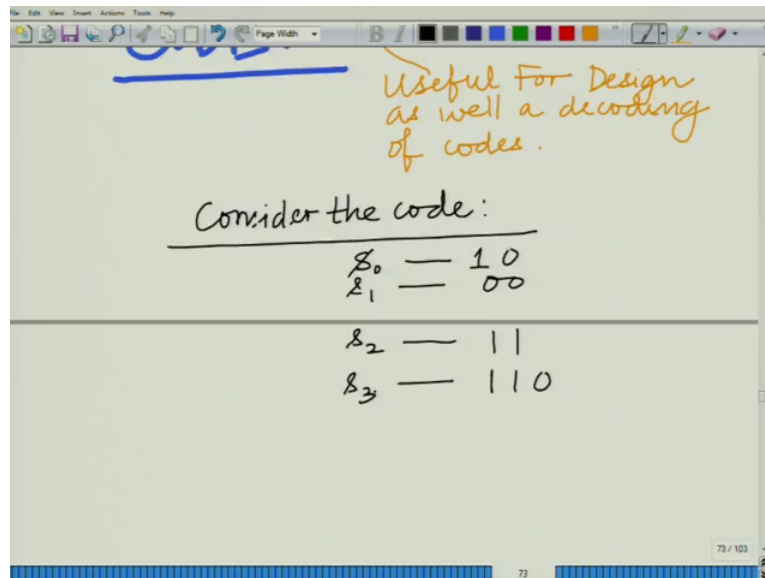 File Edit View Insert Actions Tools Help
Page Width
B I
Useful For Design
as well a decoding
of codes.
Consider the code:
s₀ — 10
s₁ — 00
s₂ — 11
s₃ — 110
73 / 103
73